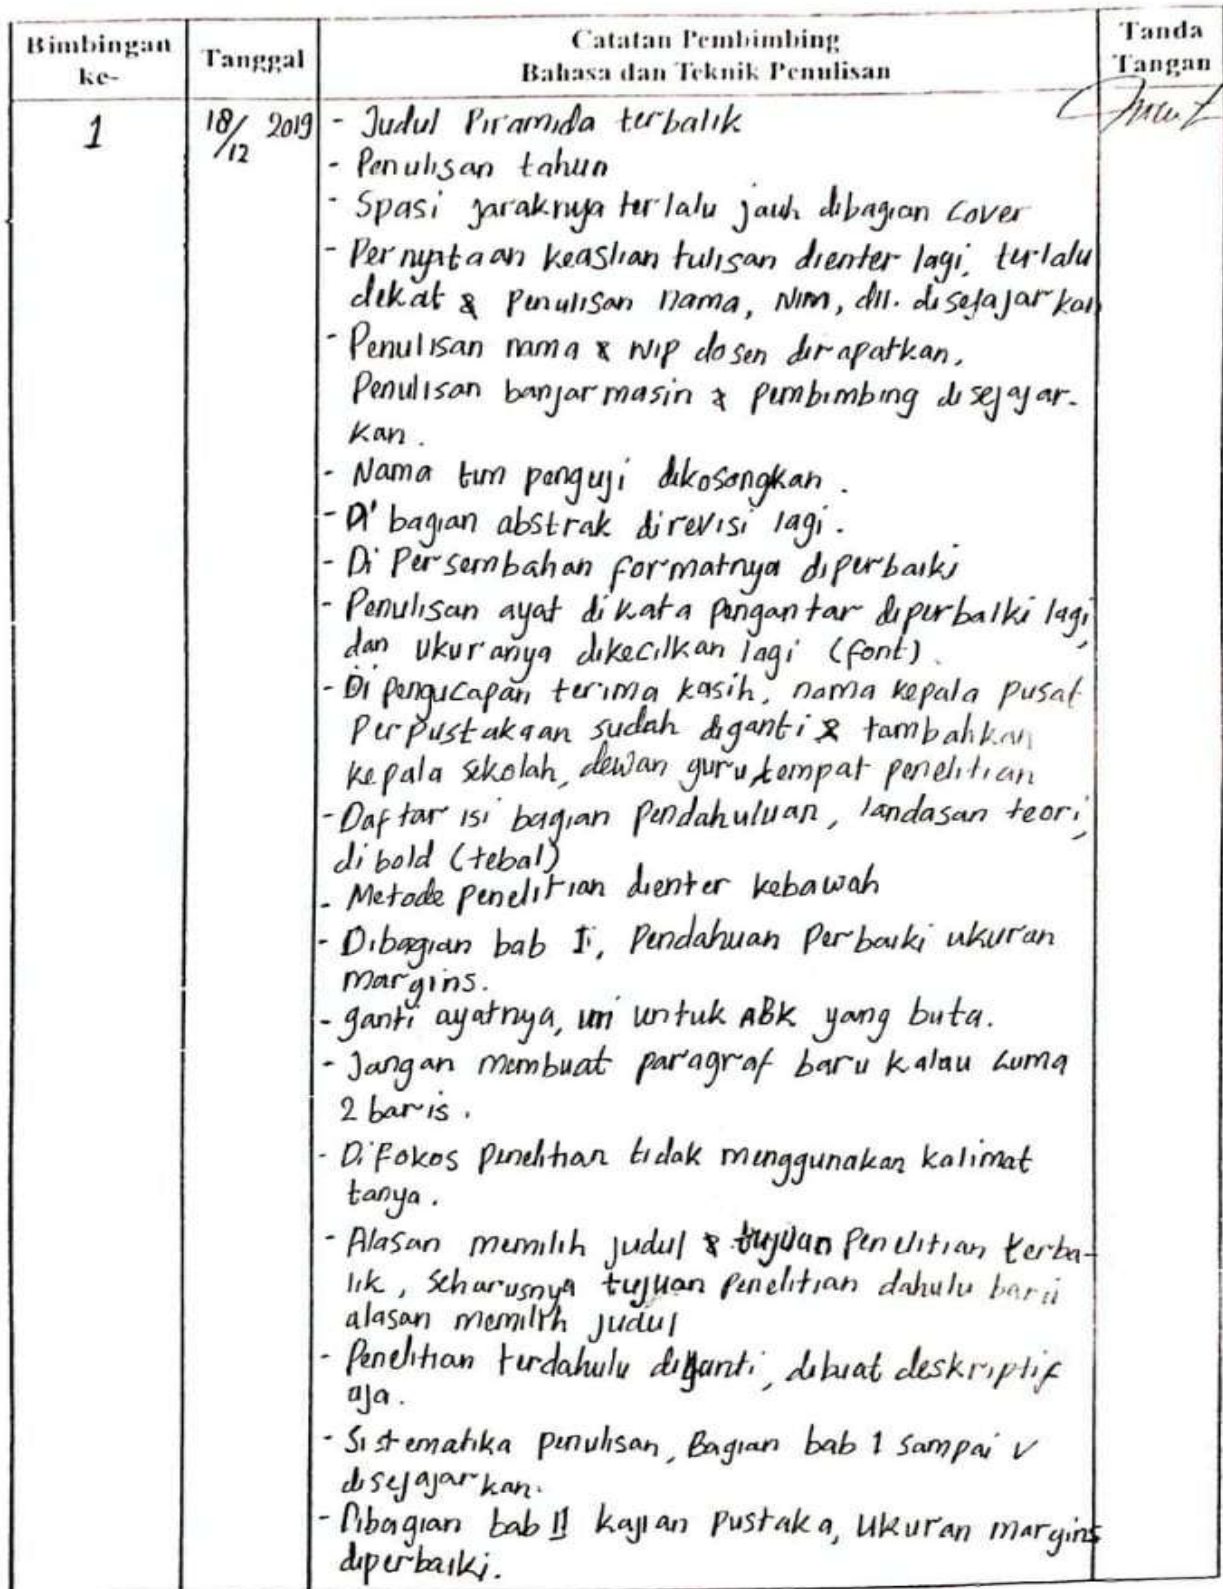 Bimbingan ke-
Tanggal
Catatan Pembimbing
Bahasa dan Teknik Penulisan
Tanda Tangan
1
18/12 2019
- Judul Piramida terbalik
- Penulisan tahun
- Spasi jaraknya terlalu jauh dibagian Cover
- Pernyataan keaslian tulisan dienter lagi, terlalu
dekat & Penulisan nama, NIM, dll. disejajarkan
- Penulisan nama & NIP dosen dirapatkan,
Penulisan banjarmasin & pembimbing disejajar-
kan.
- Nama tim penguji dikosongkan.
- Di bagian abstrak direvisi lagi.
- Di Persembahan formatnya diperbaiki
- Penulisan ayat di kata pengantar diperbaiki lagi,
dan ukuranya dikecilkan lagi (font).
- Di pengucapan terima kasih, nama kepala pusat
Perpustakaan sudah diganti & tambahkan
kepala sekolah, dewan guru tempat penelitian
- Daftar isi bagian pendahuluan, landasan teori,
di bold (tebal)
- Metode penelitian dienter kebawah
- Dibagian bab I, Pendahuan Perbaiki ukuran
margins.
- ganti ayatnya, ini untuk ABK yang buta.
- Jangan membuat paragraf baru kalau cuma
2 baris.
- Di Fokos penelitian tidak menggunakan kalimat
tanya.
- Alasan memilih judul & tujuan Penelitian terba-
lik, seharusnya tujuan penelitian dahulu baru
alasan memilih judul
- Penelitian terdahulu diganti, dibuat deskriptif
aja.
- Sistematika penulisan, Bagian bab 1 sampai V
disejajarkan.
- Dibagian bab II kajian pustaka, ukuran margins
diperbaiki.